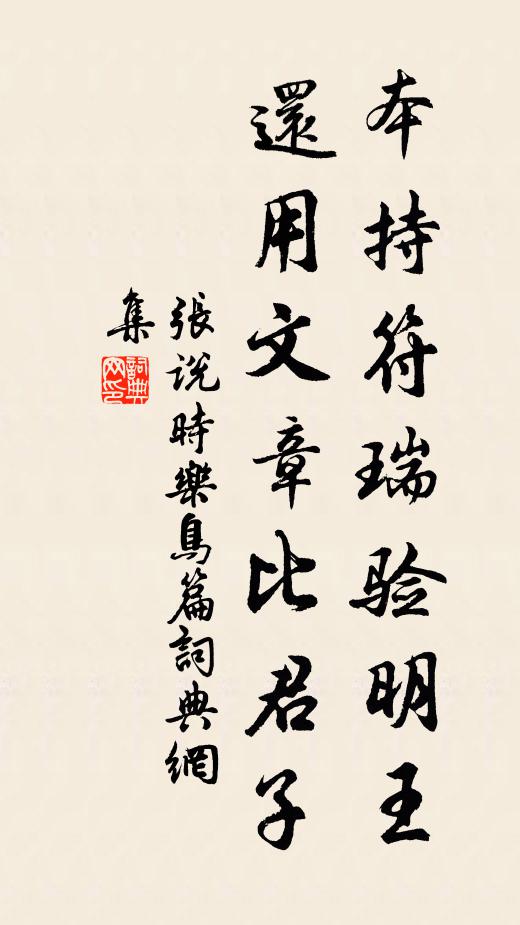 本持符瑞验明王
還用文章比君子
張说時樂鳥篇詞典網
集
詞典网印